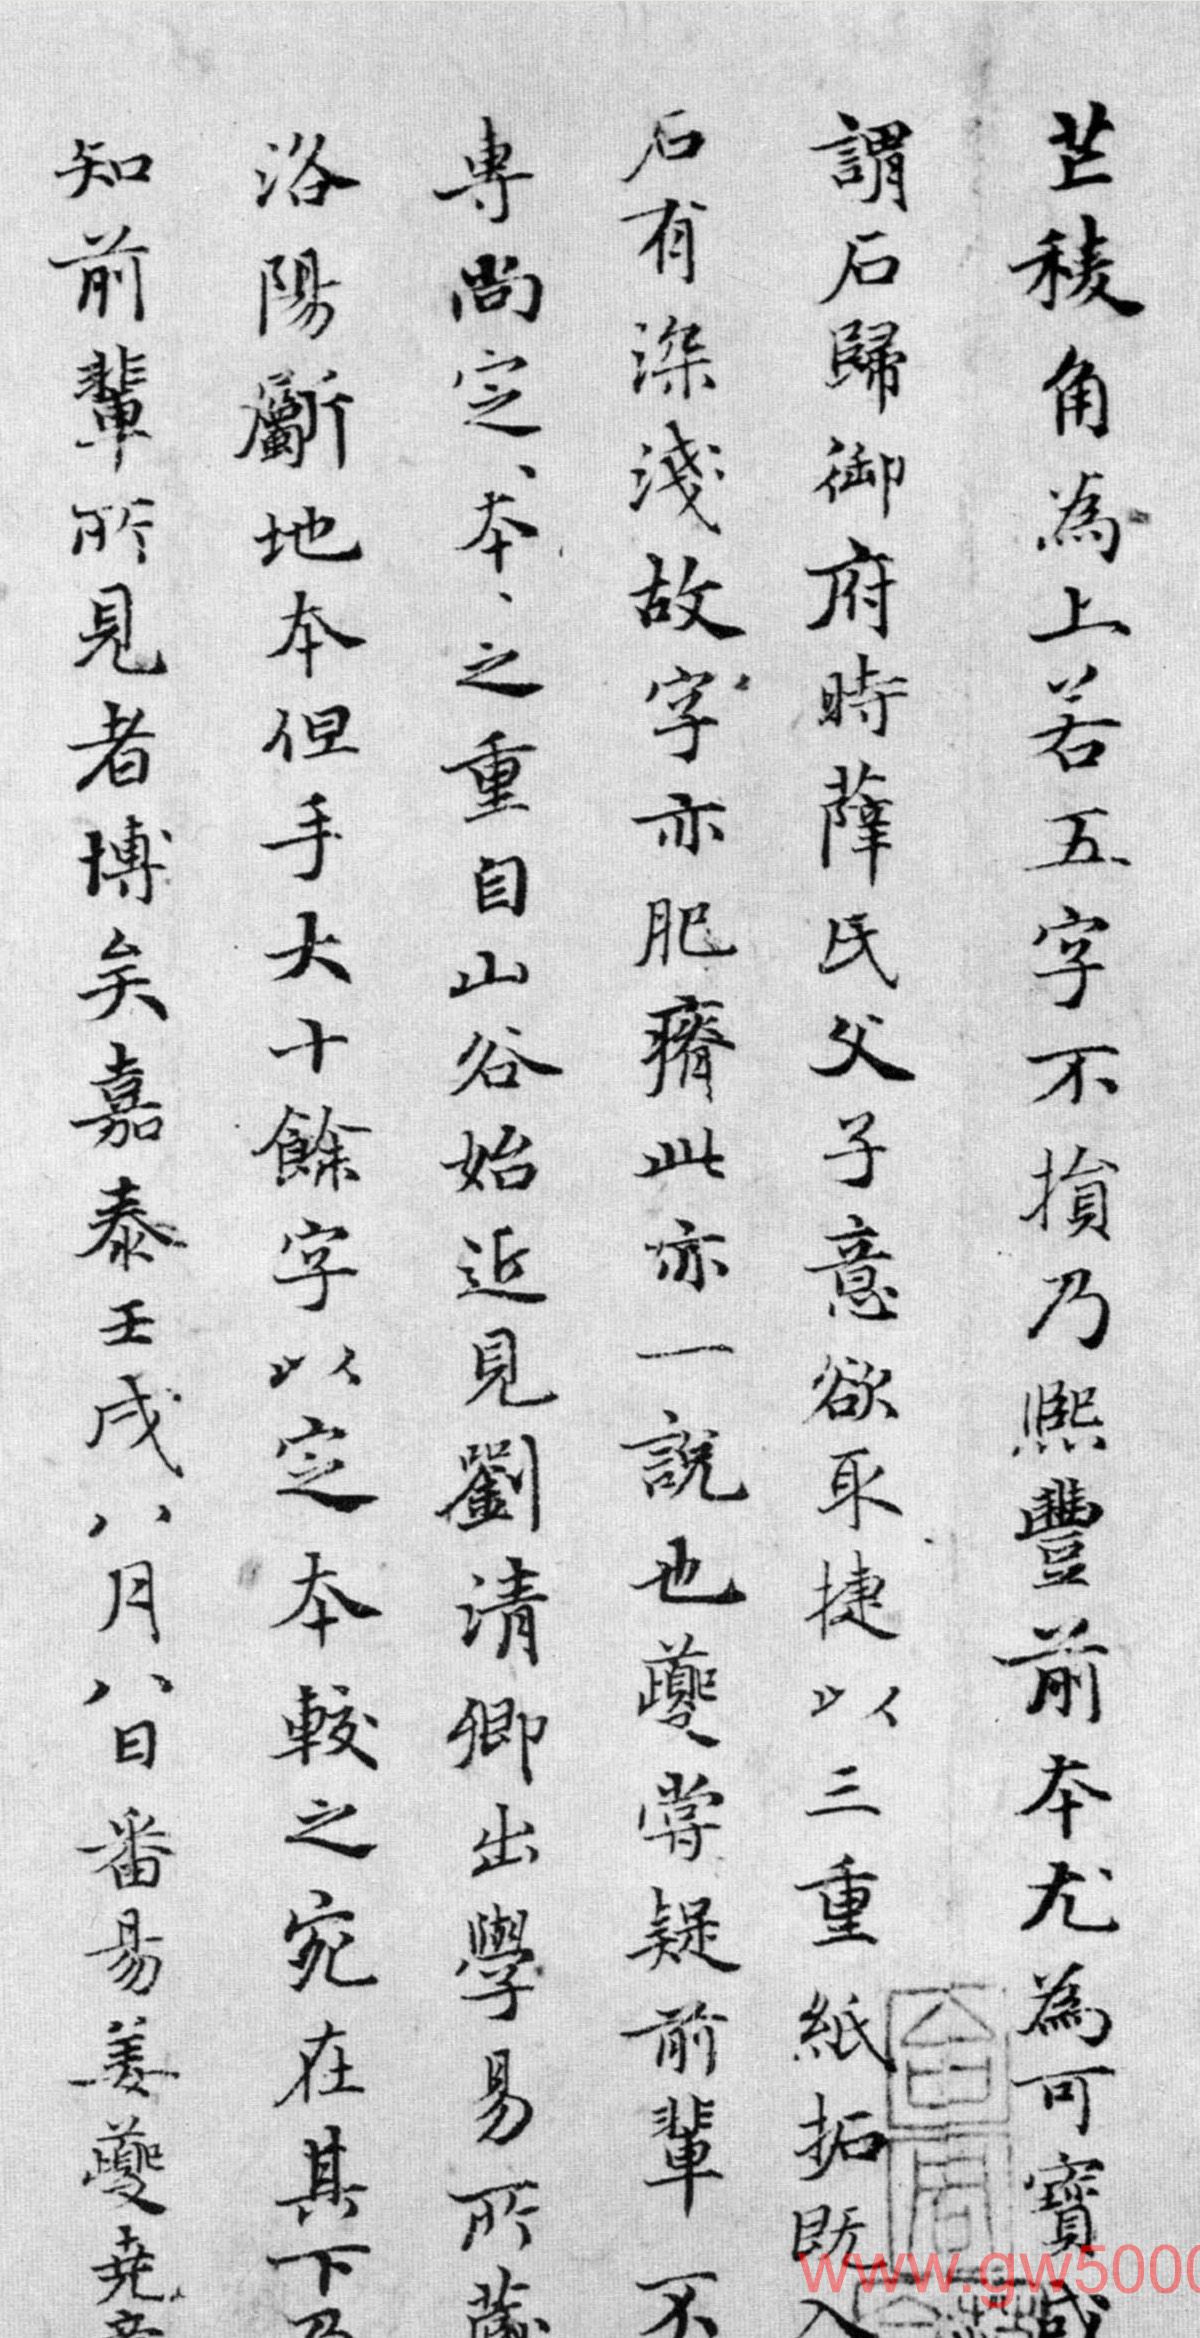 芒稜角為上若五字不損乃熙豐前本尤為可寶或
謂石歸御府時薛氏父子意欲取捷以三重紙拓既入
石有深淺故字亦肥瘠此亦一說也夔嘗疑前輩不
專尚定、本、之重自山谷始近見劉清卿出學易所藏
洛陽斸地本但手大十餘字以定本較之宛在其下乃
知前輩所見者博矣嘉泰壬戌八月八日番昜姜夔堯章
www.gw5000